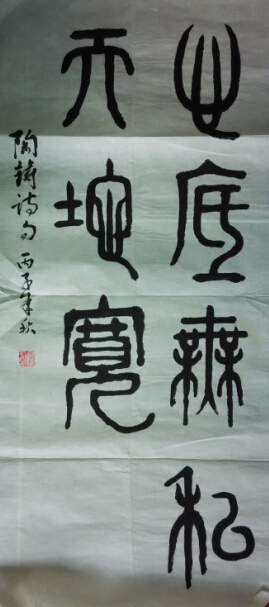 心底無私
天地寬
陶鑄詩句 丙子年秋